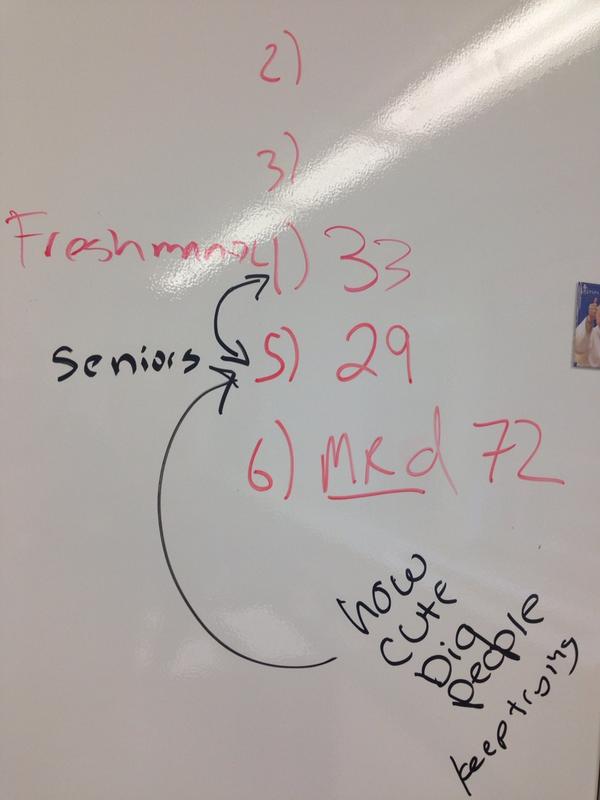 2)
3)
Freshman 4) 33
Seniors 5) 29
6) MR d 72
how
cute
Big
people
keep trying